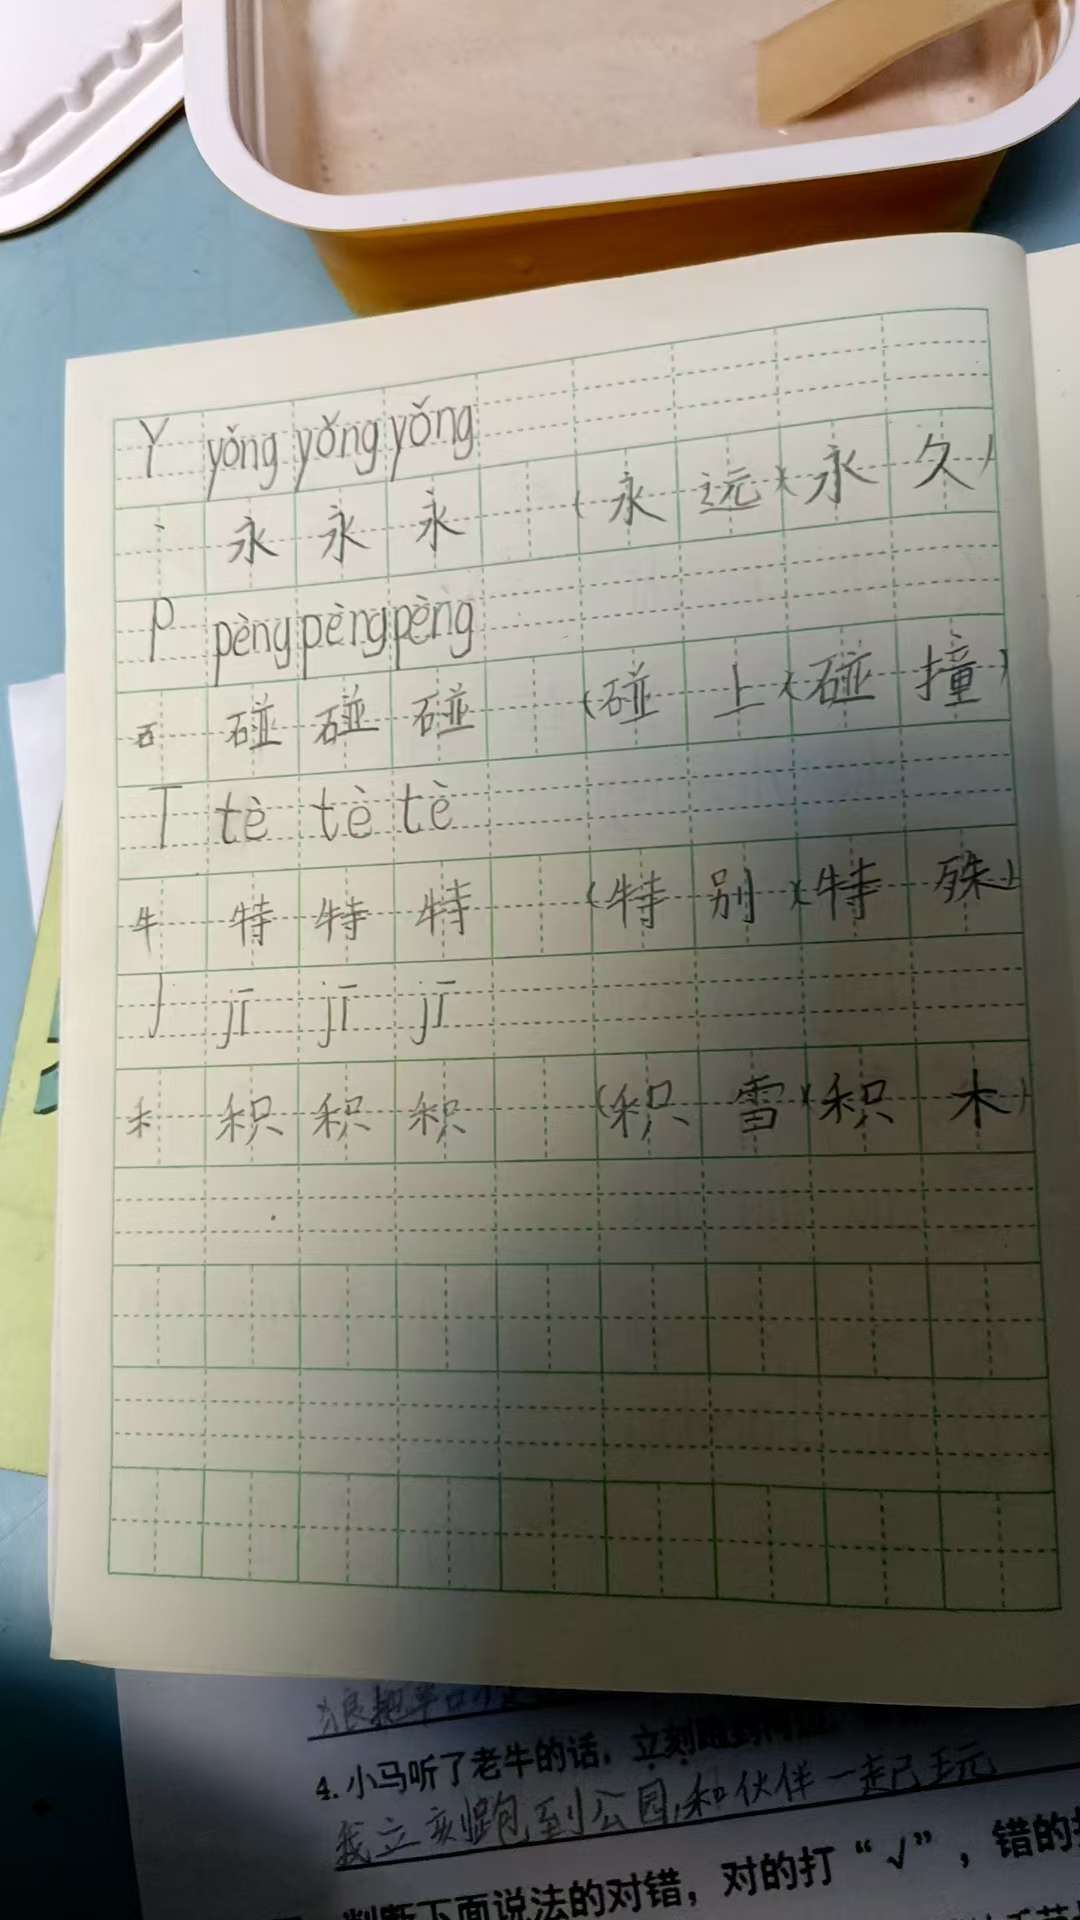 Y yǒng yǒng yǒng
丶 永 永 永 (永 远)(永 久)
P pèng pèng pèng
石 碰 碰 碰 (碰 上)(碰 撞)
T tè tè tè
牛 特 特 特 (特 别)(特 殊)
J jī jī jī
禾 积 积 积 (积 雪)(积 木)
4. 小马听了老牛的话，立刻跑到
我立刻跑到公园,和伙伴一起玩
判断下面说法的对错，对的打“√”，错的